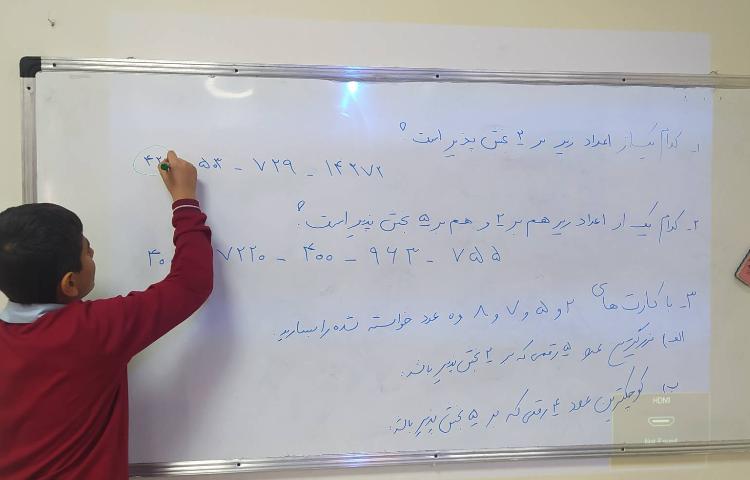 ۱- کدام یک از اعداد زیر بر ۲ بخش پذیر است؟
۱۴۲۷۲ - ۷۲۹ - ۵۰۳
۲- کدام یک از اعداد زیر هم بر ۲ و هم بر ۵ بخش پذیر است؟
۷۵۵ - ۹۶۳ - ۴۰۰ - ۷۲۲۰
۳- با کارت های ۲ و ۵ و ۷ و ۸ و ۰ عدد خواسته شده را بسازید.
الف) بزرگترین عدد ۵ رقمی که بر ۲ بخش پذیر باشد.
ب) کوچکترین عدد ۴ رقمی که بر ۵ بخش پذیر باشد.
HDMI